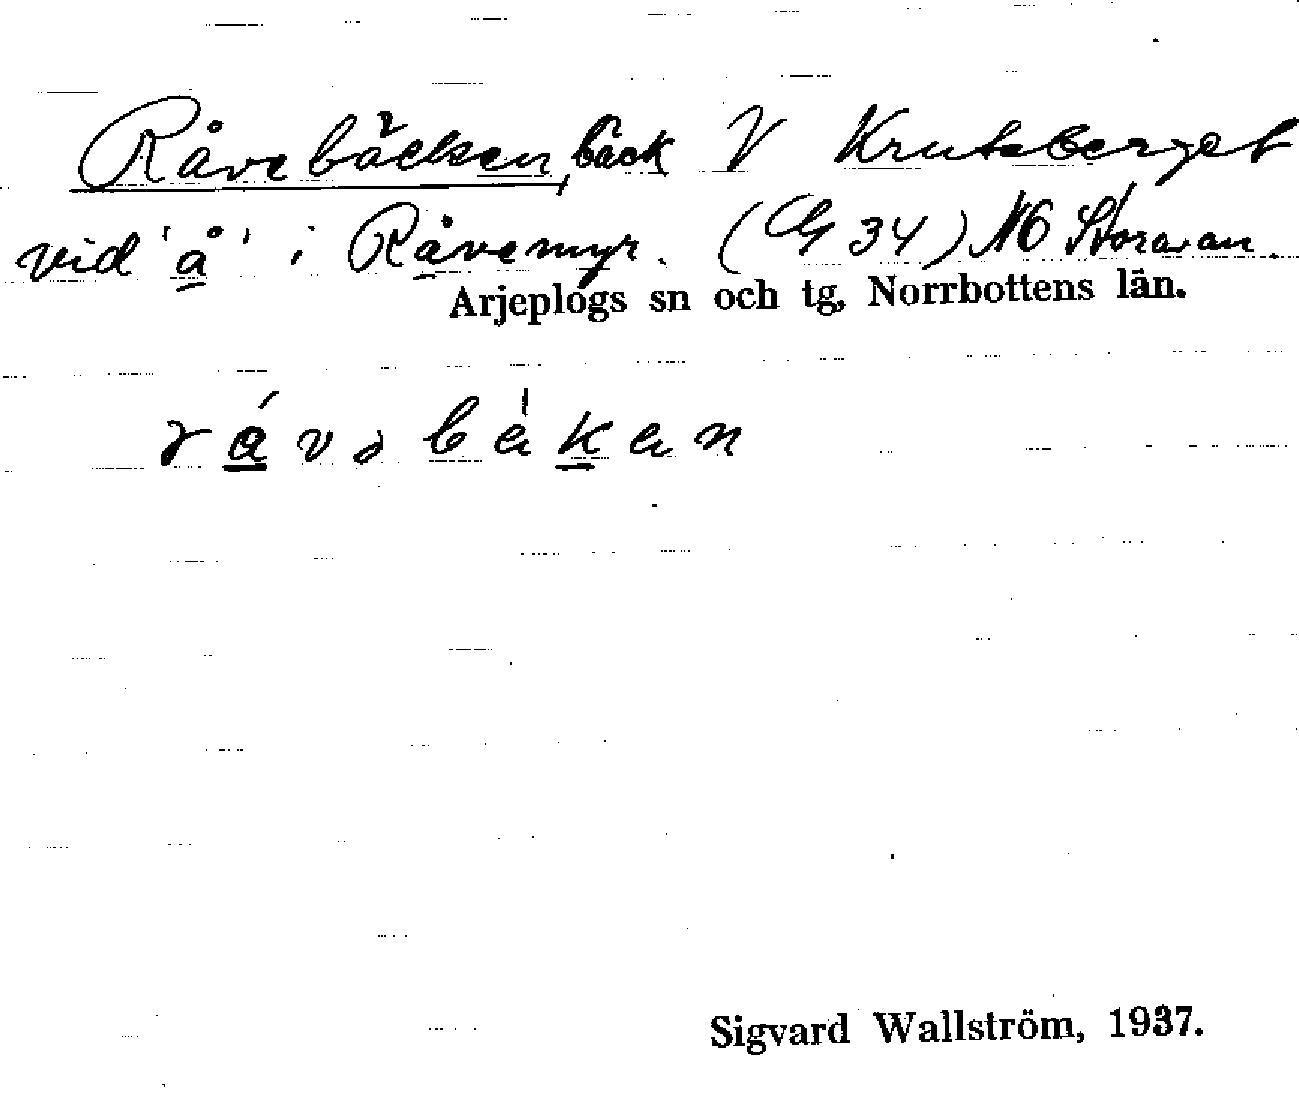 Råvebäcken, bäck V Krutsberget
vid 'å' i Råvemyr. (G 34) NO Storavan.
Arjeplogs sn och tg, Norrbottens län.
Sigvard Wallström, 1937.